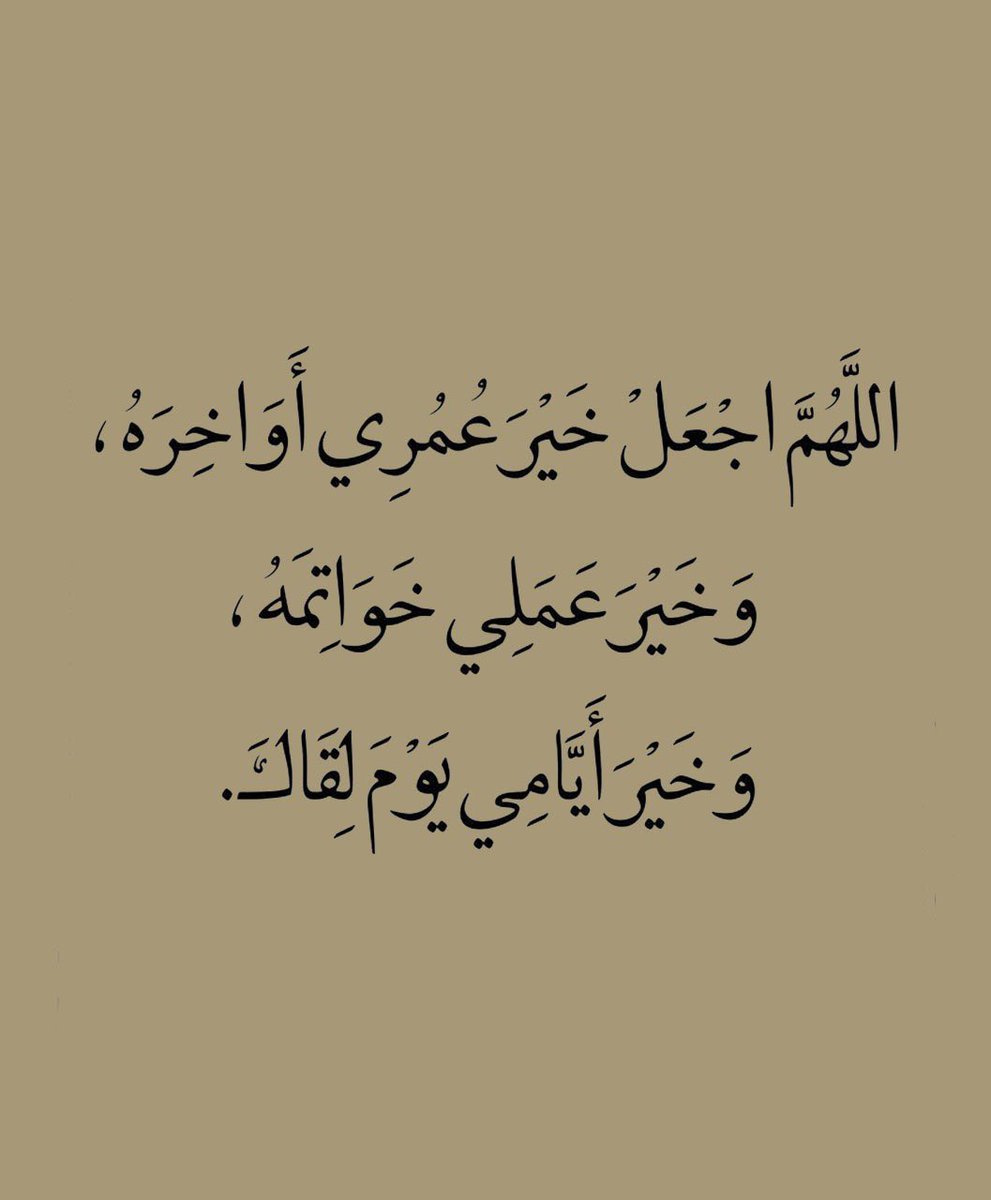 اللَّهُمَّ اجْعَلْ خَيْرَ عُمُرِي أَوَاخِرَهُ،
وَخَيْرَ عَمَلِي خَوَاتِمَهُ،
وَخَيْرَ أَيَّامِي يَوْمَ لِقَاكَ.